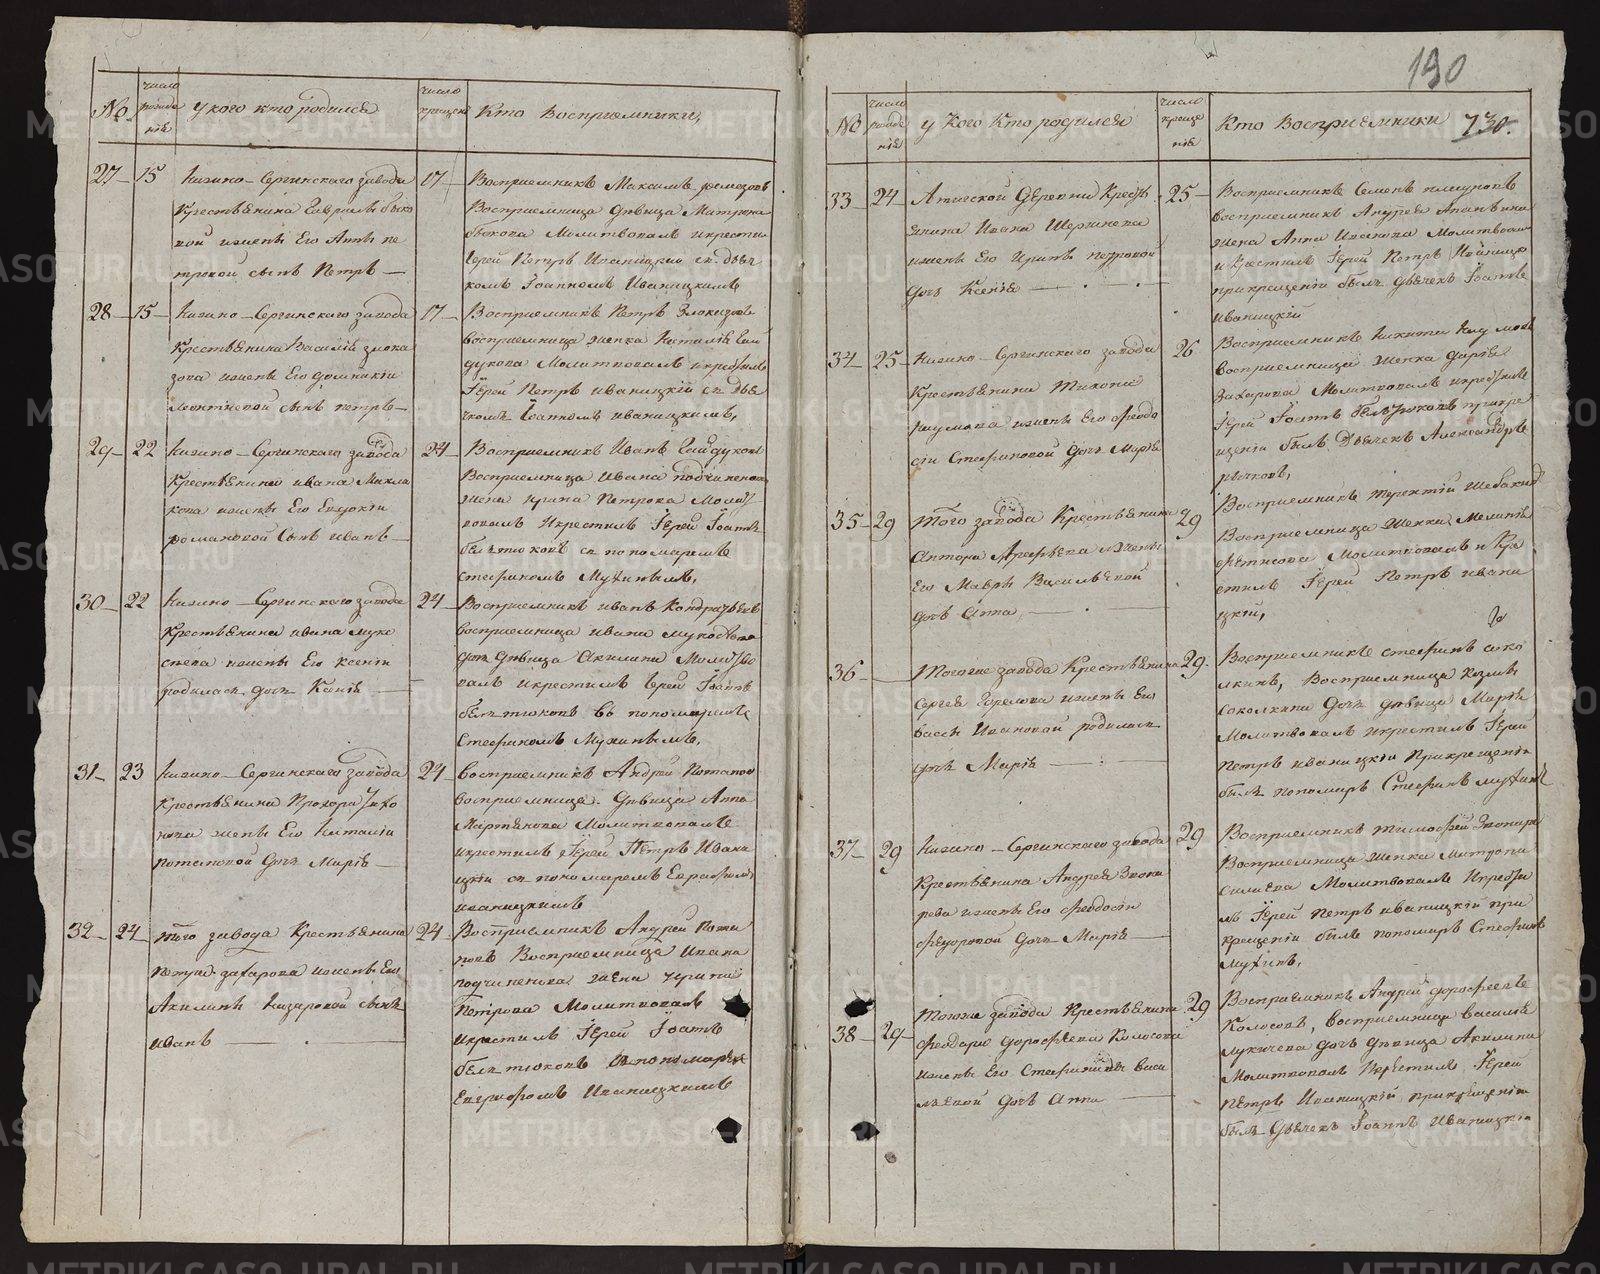 №
число рожде ния
у кого кто родился
число крещен
Кто Восприемники,
27 15
Нижно-Сергинскаго завода
Крестьянина Гаврилы быко
вой жены Его Анны пе
тровой сынъ Петръ
17
Восприемникъ Максимъ ремезовъ
Восприемница девица Матрона
быкова Молитвовалъ икрести
Iерей Петръ Иваницкий съ дьяч
комъ Iоанномъ Иваницкимъ
28 15
Нижно-Сергинскаго завода
Крестьянина Василия злока
зова жены Его домникии
леонтиевой сынъ петръ
17
Восприемникъ Петръ Злоказовъ
восприемница женка Наталия Гай
дукова Молитвовалъ икрестилъ
Iерей Петръ иваницкий съ дья
чкомъ Iоанномъ иваницкимъ,
29 22
Нижно-Сергинскаго завода
Крестьянина ивана Макла
кова жены Его Евдокии
романовой Сынъ иванъ
24
Восприемникъ Иванъ Гайдуковъ
Восприемница Ивана подчиненова
жена ирина Петрова Молит
вовалъ Икрестилъ Iерей Iоаннъ
белътюковъ съ пономаремъ
стефаномъ Мухинымъ,
30 22
Нижно-Сергинскаго завода
Крестьянина ивана
жены Его ксении
родилась дочь Ксения
24
Восприемникъ иванъ Кондратьевъ
восприемница ивана
дочь девица Акилина Молитво
валъ икрестилъ Iерей Iоаннъ
белътюковъ съ пономаремъ
Стефаномъ Мухинымъ,
31 23
Нижно-Сергинскаго завода
Крестьянина Прохора Тихо
нова жены Его Наталии
потаповой дочь Мария
24
восприемникъ Андрей Потапов
восприемница девица Анна
Мартьянова Молитвовалъ
икрестилъ Iерей Петръ Ивани
цкий съ пономаремъ Евграфомъ
иваницкимъ
32 24
того завода Крестьянина
петра захарова жены Его
Акилины Назаровой сынъ
иванъ
24
Восприемникъ Андрей
Восприемница Ивана
подчиненова жена ирина
Петрова Молитвовалъ
икрестилъ Iерей Iоаннъ
белътюковъ съ пономаремъ
Евграфомъ Иваницкимъ
190
№
число рожде ния
у кого кто родился
число креще ния
Кто Восприемники 730.
33 24
Атигской деревни Кресть
янина Ивана Щергинева
жены Его Ирины петровой
дочь Ксения
25
Восприемникъ Семенъ
восприемникъ Андрея Ананьина
жена Анна Иванова Молитвовал
и крестилъ Iерей Петръ Иваницк
прикрещении былъ дьячекъ Iоаннъ
иваницкий
34 25
Нижно-Сергинскаго завода
Крестьянина Тихона
наумова жены Его Феодо
сии Стефановой дочь Мария
26
Восприемникъ Никита Наумовъ
восприемница женка дария
Захарова Молитвовалъ икрестилъ
Iерей Iоаннъ белътюковъ прикре
щении былъ Дьячекъ Александръ
рычковъ,
35 29
того завода Крестьянина
Антона Арефьева жены
Его Мавры Васильевой
дочь Анна,
29
Восприемникъ терентий Шевакин
Восприемница женка Мелания
Молитвовалъ и Кре
стилъ Iерей Петръ ивани
цкий,
36
Тогоже завода Крестьянина
Сергея Горелова жены Его
вассы Ивановой родилась
дочь Мария
29.
Восприемникъ стефанъ соко
лкинъ, Восприемница козмы
Соколкина дочь девица Мария
Молитвовалъ икрестилъ Iерей
петръ иваницкий Прикрещении
былъ пономарь Стефанъ мухинъ
37 29
Нижно-Сергинскаго завода
Крестьянина Андрея Звона
рева жены Его Феодосии
Федоровой дочь Мария
29
Восприемникъ тимофей Звонаре
Восприемница женка Матрона
Силаева Молитвовалъ Икрести
лъ Iерей петръ иваницкий при
крещении былъ пономарь Стефанъ
мухинъ,
38 29
Тогоже завода Крестьянина
феодара дорофеева Колосова
жены Его Стефаниды васи
льевой дочь Анна
29
Восприемникъ Андрей дорофеевъ
Колосовъ, восприемница василия
лукичева дочь девица Акилина
Молитвовалъ Икрестилъ Iерей
Петръ Иваницкий, прикрещении
былъ Дьячекъ Iоаннъ Иваницкий